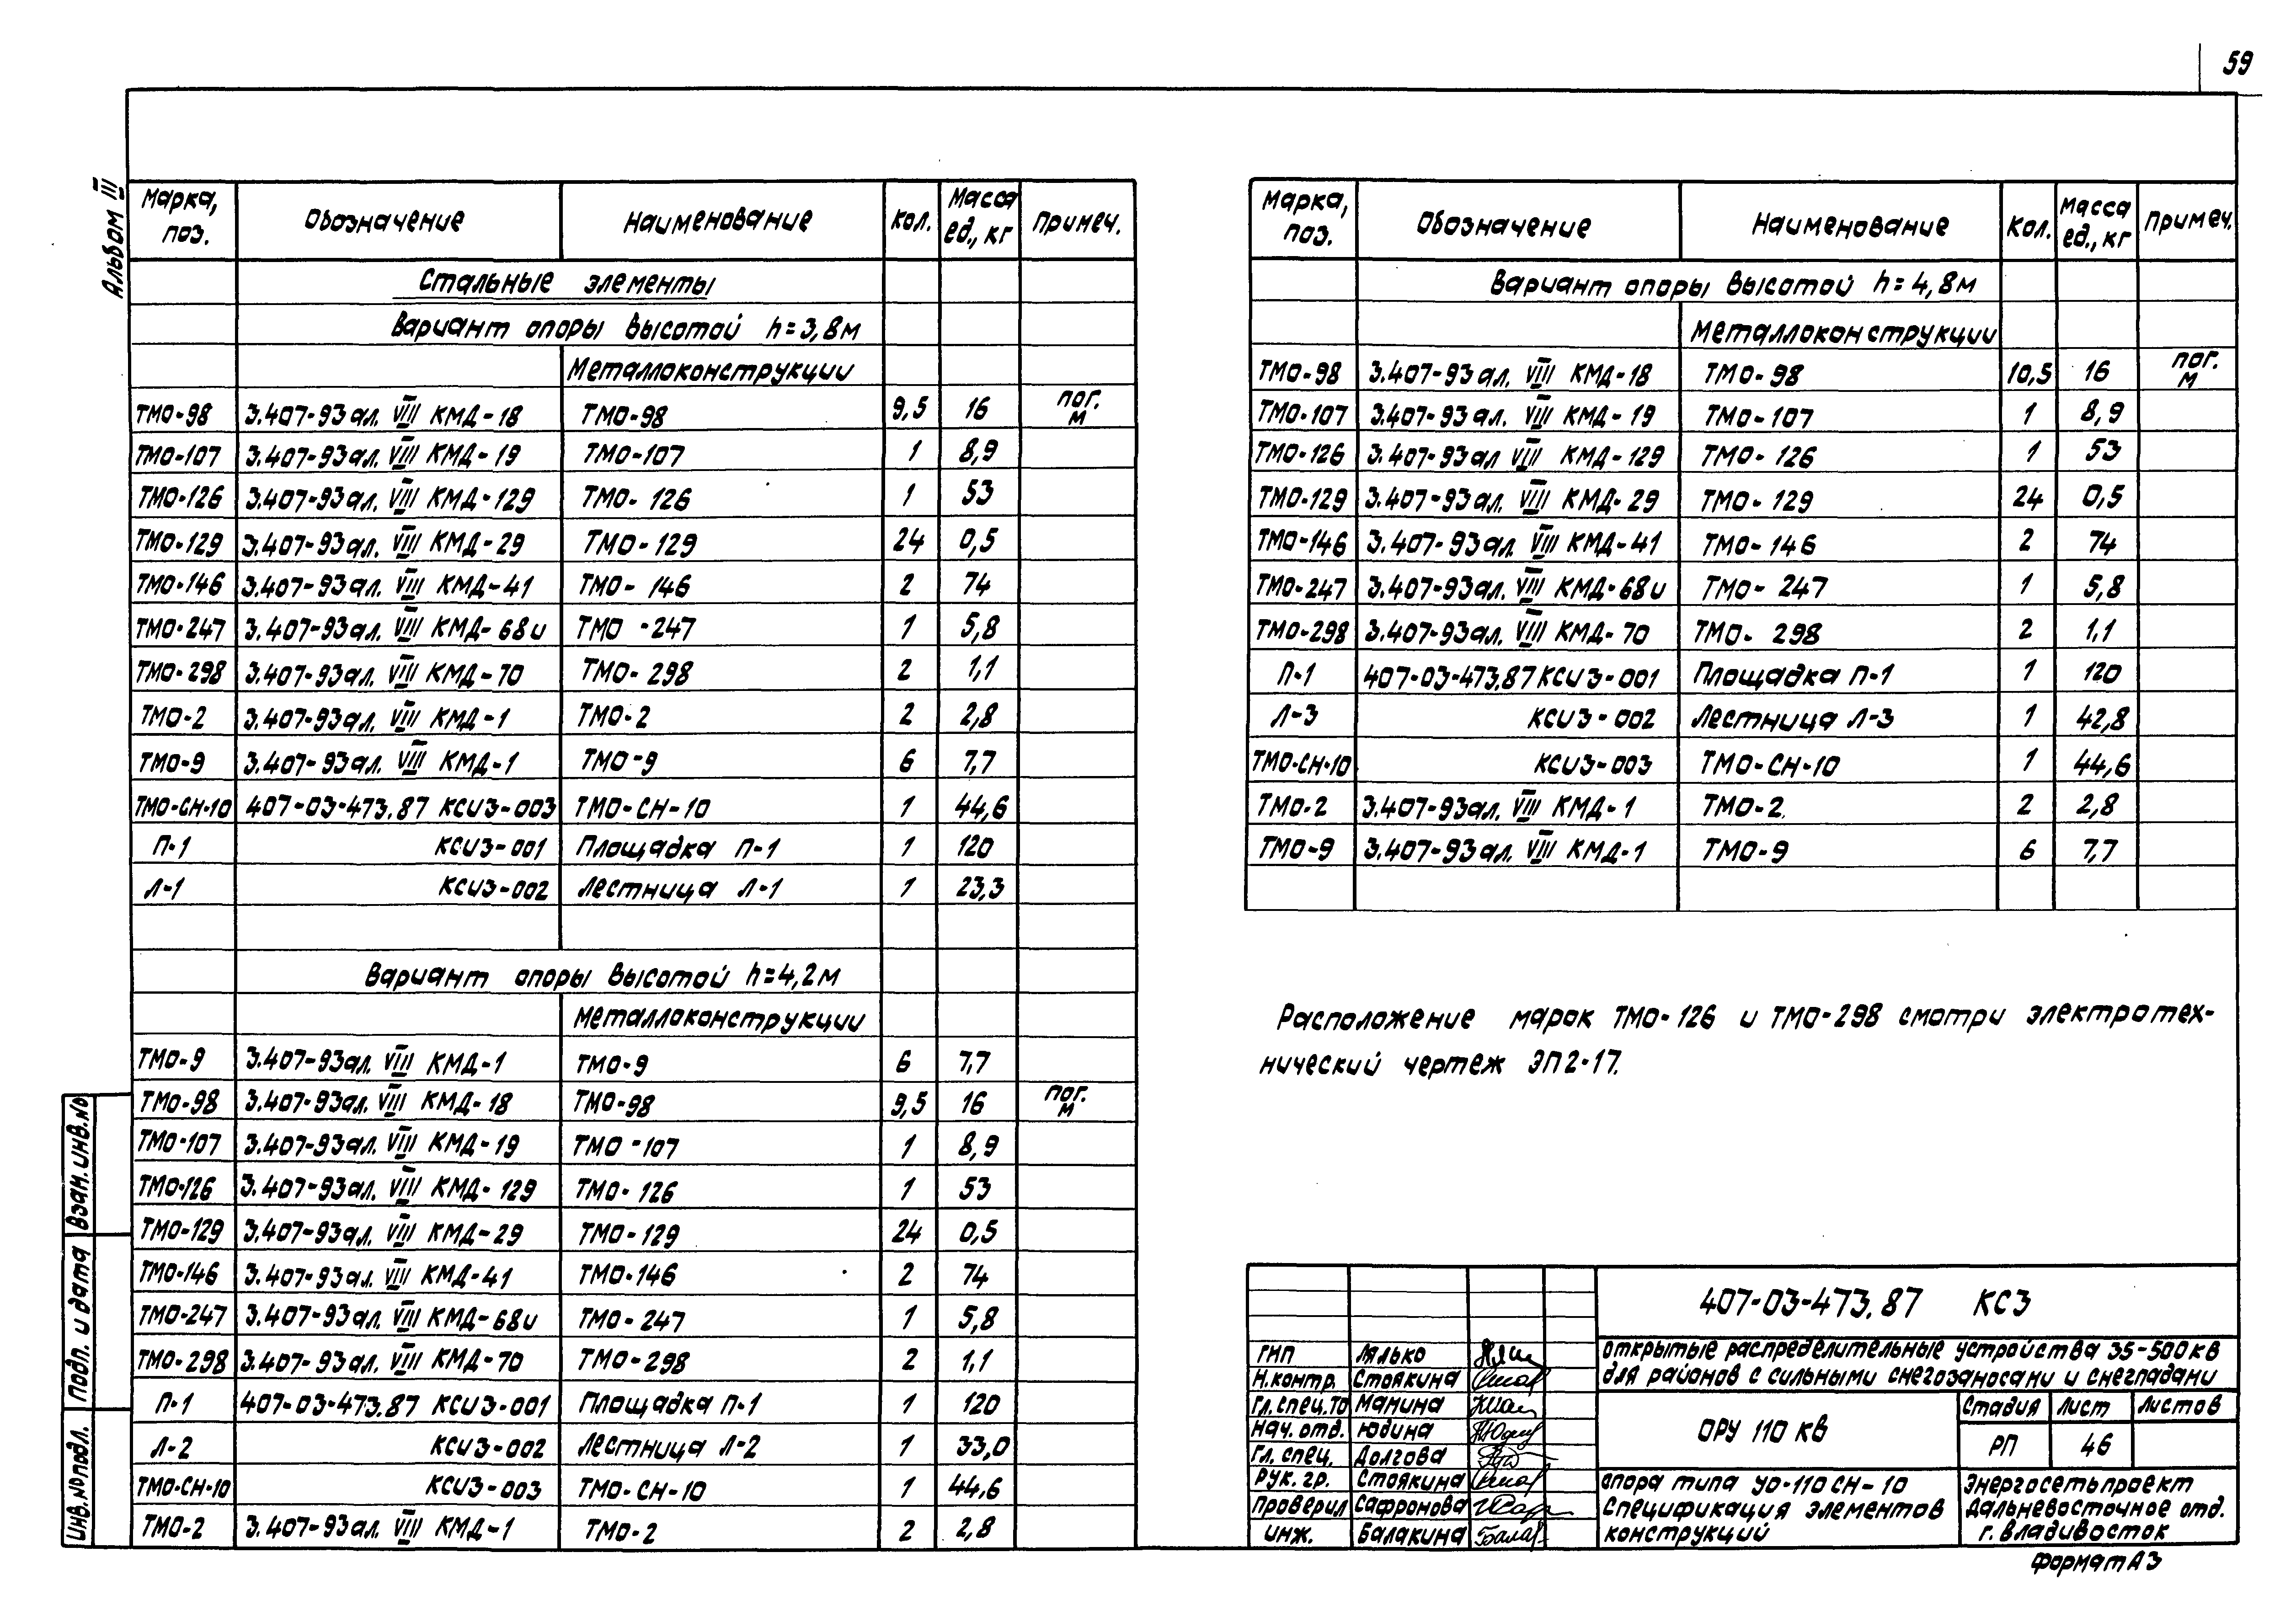 59
Альбом III
Марка, поз. Обозначение Наименование Кол. Масса ед., кг Примеч.
Стальные элементы
Вариант опоры высотой h=3,8м
Металлоконструкции
ТМО-98 3.407-93 ал. VIII КМД-18 ТМО-98 9,5 16 пог. м
ТМО-107 3.407-93 ал. VIII КМД-19 ТМО-107 1 8,9
ТМО-126 3.407-93 ал. VIII КМД-129 ТМО-126 1 53
ТМО-129 3.407-93 ал. VIII КМД-29 ТМО-129 24 0,5
ТМО-146 3.407-93 ал. VIII КМД-41 ТМО-146 2 74
ТМО-247 3.407-93 ал. VIII КМД-68и ТМО-247 1 5,8
ТМО-298 3.407-93 ал. VIII КМД-70 ТМО-298 2 1,1
ТМО-2 3.407-93 ал. VIII КМД-1 ТМО-2 2 2,8
ТМО-9 3.407-93 ал. VIII КМД-1 ТМО-9 6 7,7
ТМО-СН-10 407-03-473.87 КСИЗ-003 ТМО-СН-10 1 44,6
П-1 КСИЗ-001 Площадка П-1 1 120
Л-1 КСИЗ-002 Лестница Л-1 1 23,3
Вариант опоры высотой h=4,2м
Металлоконструкции
ТМО-9 3.407-93 ал. VIII КМД-1 ТМО-9 6 7,7
ТМО-98 3.407-93 ал. VIII КМД-18 ТМО-98 9,5 16 пог. м
ТМО-107 3.407-93 ал. VIII КМД-19 ТМО-107 1 8,9
ТМО-126 3.407-93 ал. VIII КМД-129 ТМО-126 1 53
ТМО-129 3.407-93 ал. VIII КМД-29 ТМО-129 24 0,5
ТМО-146 3.407-93 ал. VIII КМД-41 ТМО-146 2 74
ТМО-247 3.407-93 ал. VIII КМД-68и ТМО-247 1 5,8
ТМО-298 3.407-93 ал. VIII КМД-70 ТМО-298 2 1,1
П-1 407-03-473.87 КСИЗ-001 Площадка П-1 1 120
Л-2 КСИЗ-002 Лестница Л-2 1 33,0
ТМО-СН-10 КСИЗ-003 ТМО-СН-10 1 44,6
ТМО-2 3.407-93 ал. VIII КМД-1 ТМО-2 2 2,8
Марка, поз. Обозначение Наименование Кол. Масса ед., кг Примеч.
Вариант опоры высотой h=4,8м
Металлоконструкции
ТМО-98 3.407-93 ал. VIII КМД-18 ТМО-98 10,5 16 пог. м
ТМО-107 3.407-93 ал. VIII КМД-19 ТМО-107 1 8,9
ТМО-126 3.407-93 ал VIII КМД-129 ТМО-126 1 53
ТМО-129 3.407-93 ал. VIII КМД-29 ТМО-129 24 0,5
ТМО-146 3.407-93 ал VIII КМД-41 ТМО-146 2 74
ТМО-247 3.407-93 ал. VIII КМД-68и ТМО-247 1 5,8
ТМО-298 3.407-93 ал. VIII КМД-70 ТМО-298 2 1,1
П-1 407-03-473.87 КСИЗ-001 Площадка П-1 1 120
Л-3 КСИЗ-002 Лестница Л-3 1 42,8
ТМО-СН-10 КСИЗ-003 ТМО-СН-10 1 44,6
ТМО-2 3.407-93 ал. VIII КМД-1 ТМО-2 2 2,8
ТМО-9 3.407-93 ал. VIII КМД-1 ТМО-9 6 7,7
Расположение марок ТМО-126 и ТМО-298 смотри электротех-
нический чертеж ЭП2-17.
407-03-473.87 КС3
Открытые распределительные устройства 35-500кв
для районов с сильными снегозаносами и снегпадани
ГИП Лялько
Н.контр. Стоякина
Гл.спец.ТО Манина
Нач. отд. Юдина
Гл. спец. Долгова
Рук. гр. Стоякина
Проверил Сафронова
Инж. Балакина
ОРУ 110 кв
Стадия Лист Листов
РП 46
Опора типа УО-110СН-10
Спецификация элементов
конструкций
Энергосетьпроект
Дальневосточное отд.
г. Владивосток
Формат А3
Взам. инв. №
Подп. и дата
Инв. № подл.